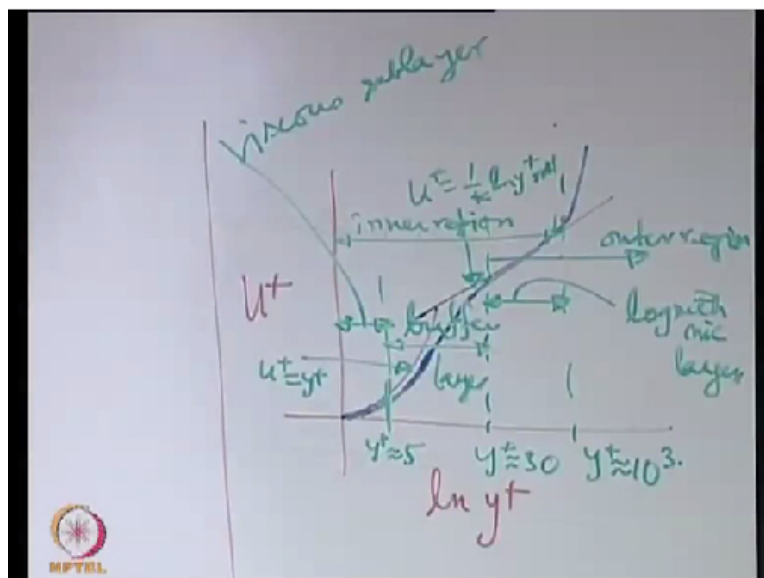 viscous sublayer
u+ = 1/κ ln y+
inner region
outer region
u+
buffer
layer
logarith
mic
layer
u+ = y+
y+ ≈ 5
y+ ≈ 30
y+ ≈ 10³
ln y+
NPTEL